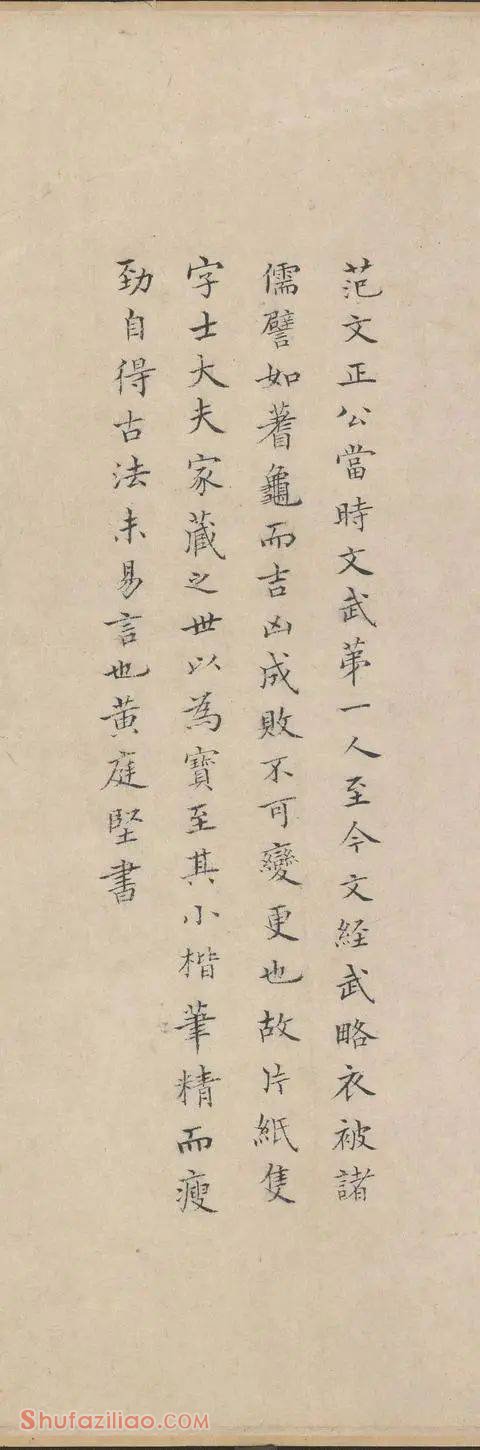 范文正公當時文武苐一人至今文經武略衣被諸
儒譬如蓍龜而吉凶成敗不可變更也故片紙隻
字士大夫家藏之世以為寶至其小楷筆精而瘦
勁自得古法未易言也黃庭堅書
Shufaziliao.com 书法资料